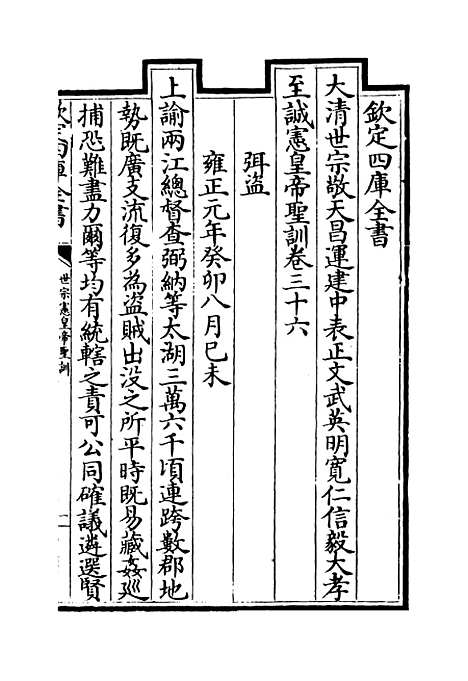 欽定四庫全書
大清世宗敬天昌運建中表正文武英明寬仁信毅大孝
至誠憲皇帝聖訓卷三十六
弭盗
雍正元年癸卯八月己未
上諭兩江總督查弼納等太湖三萬六千頃連跨數郡地
勢既廣支流復多為盜賊出没之所平時既易藏姦廵
捕恐難盡力爾等均有統轄之責可公同確議遴選賢
欽定四庫全書
世宗憲皇帝聖訓
一